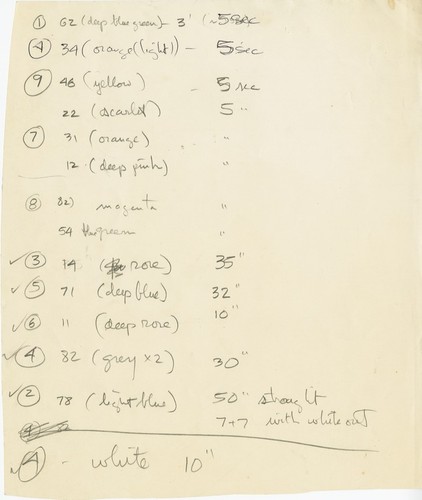 ① 62 (deep blue green) - 3' (~5sec
④ 34 (orange (light)) - 5 sec
⑨ 46 (yellow) 5 sec
22 (scarlet) 5 "
⑦ 31 (orange) "
12 (deep pink) "
⑧ 82) magenta "
54 green "
✓ ③ 14 (rose) 35"
✓ ⑤ 71 (deep blue) 32"
✓ ⑥ 11 (deep rose) 10"
✓ ④ 82 (grey x 2) 30"
✓ ② 78 (light blue) 50" straight
7+7 with white out
④ - white 10"